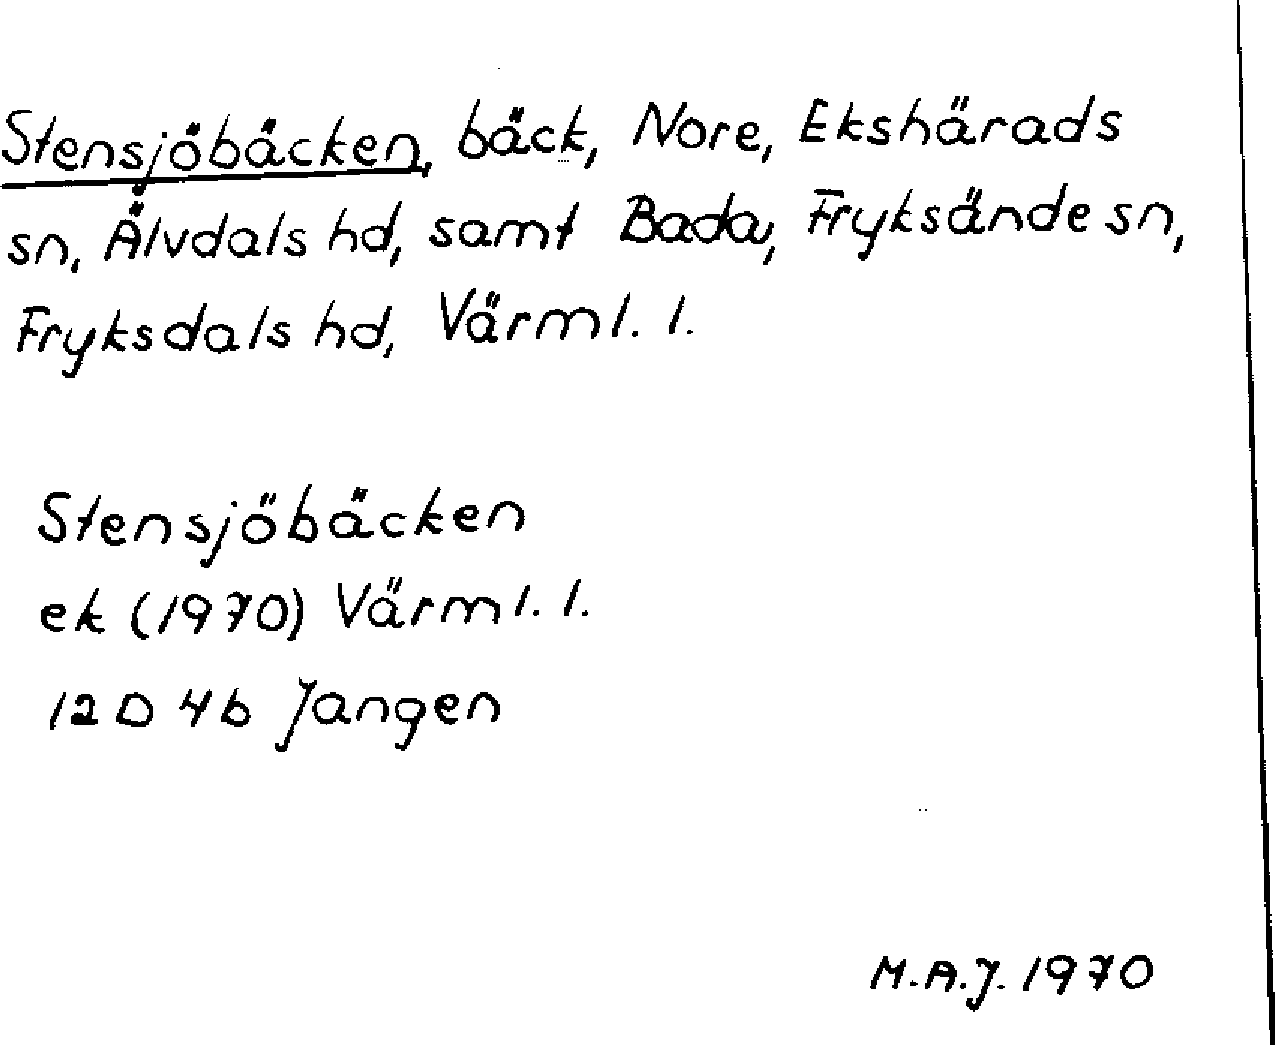 Stensjöbäcken, bäck, Nore, Ekshärads
sn, Älvdals hd, samt Bada, Fryksände sn,
Fryksdals hd, Värml. l.
Stensjöbäcken
ek (1970) Värml. l.
12 D 4b Jangen
M.A.J. 1970